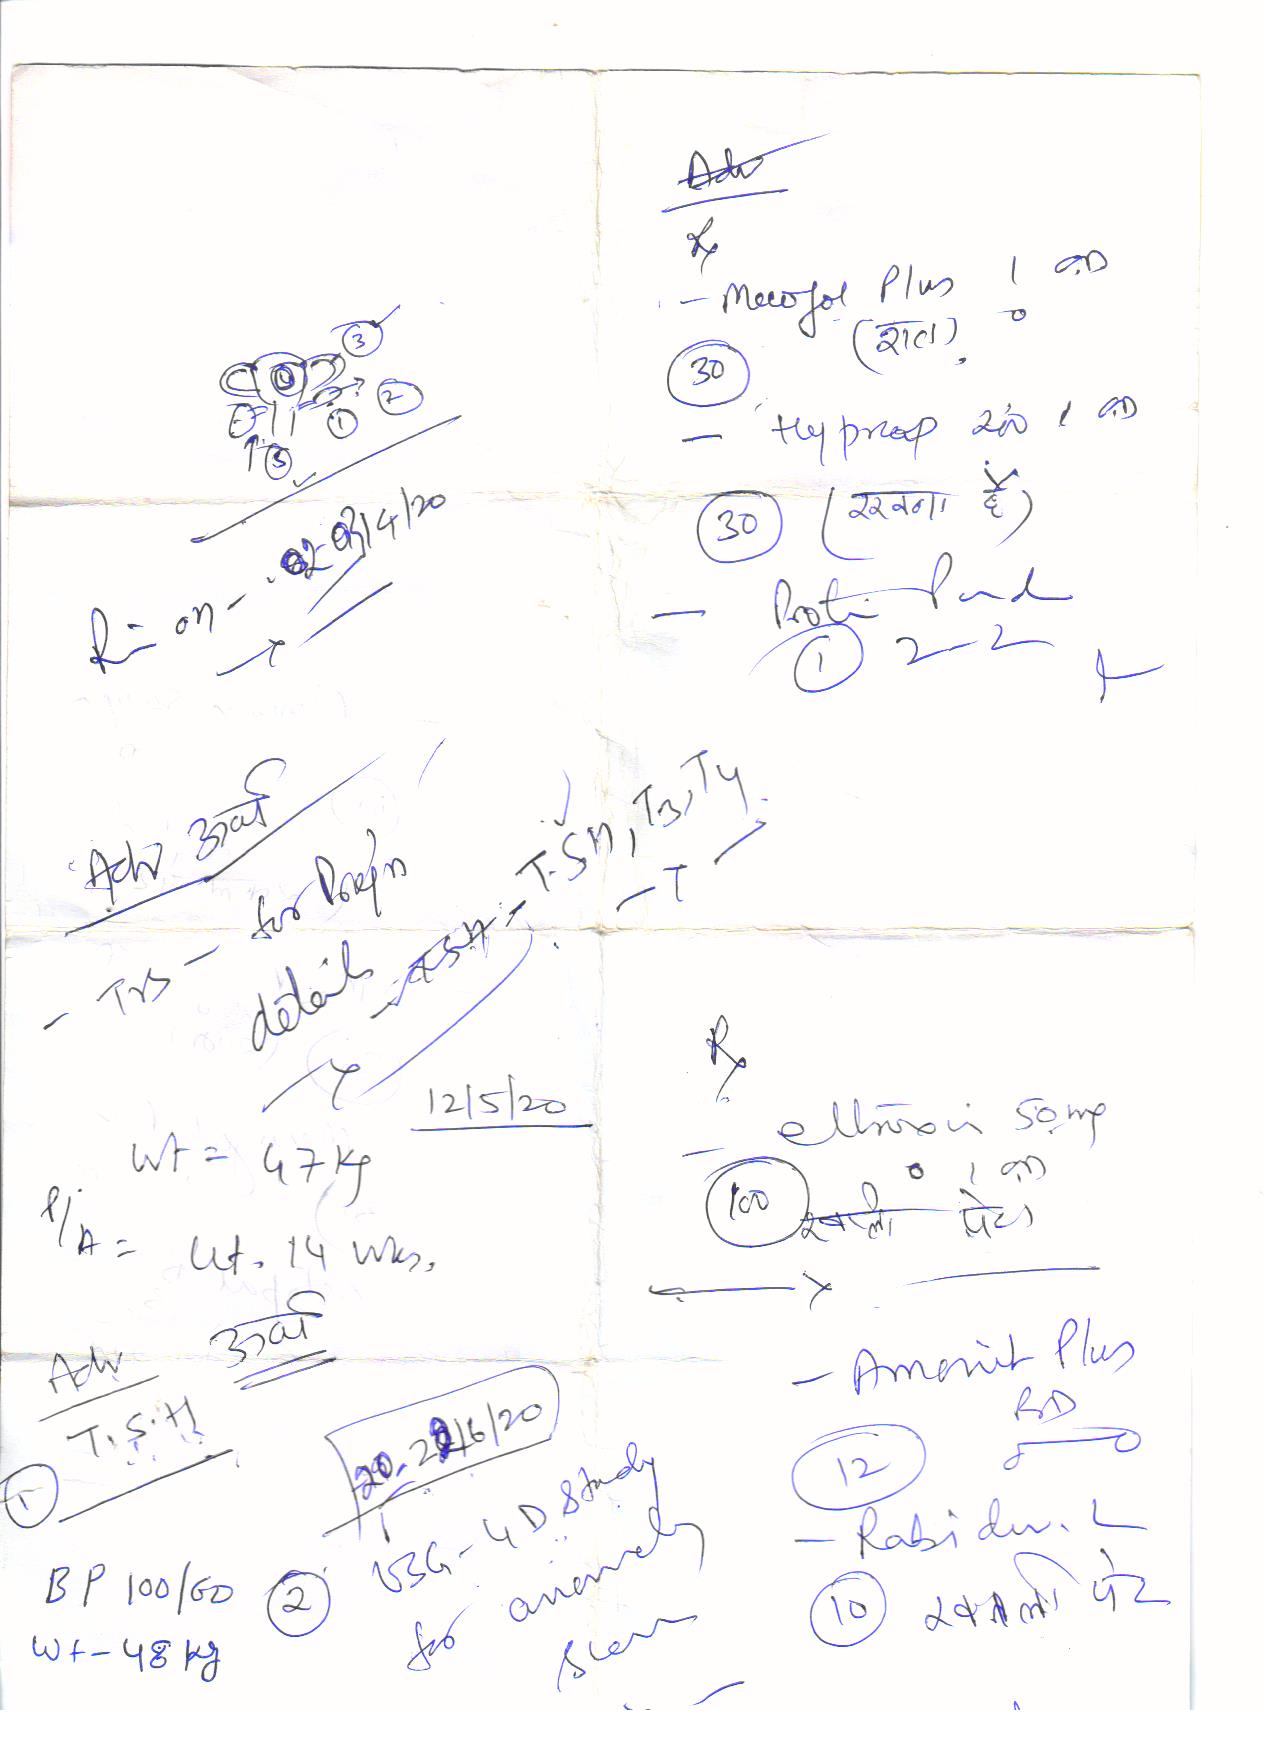 Adv
Rx
- Mecofol Plus 1 OD
(रात)
30
- Hyprop 200 1 OD
30 (रखना है)
- Protin Pwd
1 2-2
3
4
2
1
5
R - on - 02-03/4/20
Adv आर्या
- TVS - for Pregn
details
TSH - T.SH, T3, T4
12/5/20
Wt = 47 kg
P/A = Ut. 14 wks.
Adv आर्या
1 T.S.H
20-22/6/20
2 USG - 4D Study
for anomaly
scan
BP 100/60
Wt - 48 kg
Rx
- eltroxin 50 mg
100 1 OD
खाली पेट
- Plus
BD
12
- L
10 खाली पेट